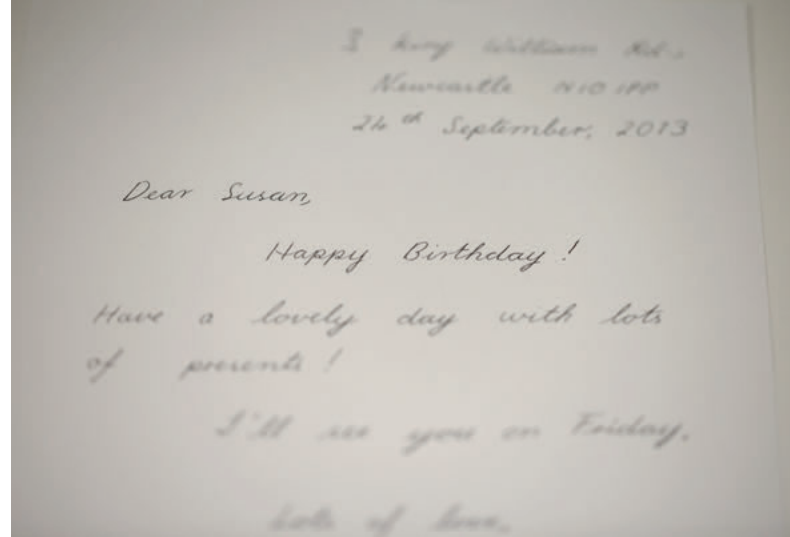 3 King William Rd.,
Newcastle N10 1PP
24th September, 2013
Dear Susan,
Happy Birthday!
Have a lovely day with lots
of presents!
I'll see you on Friday.
Lots of love,